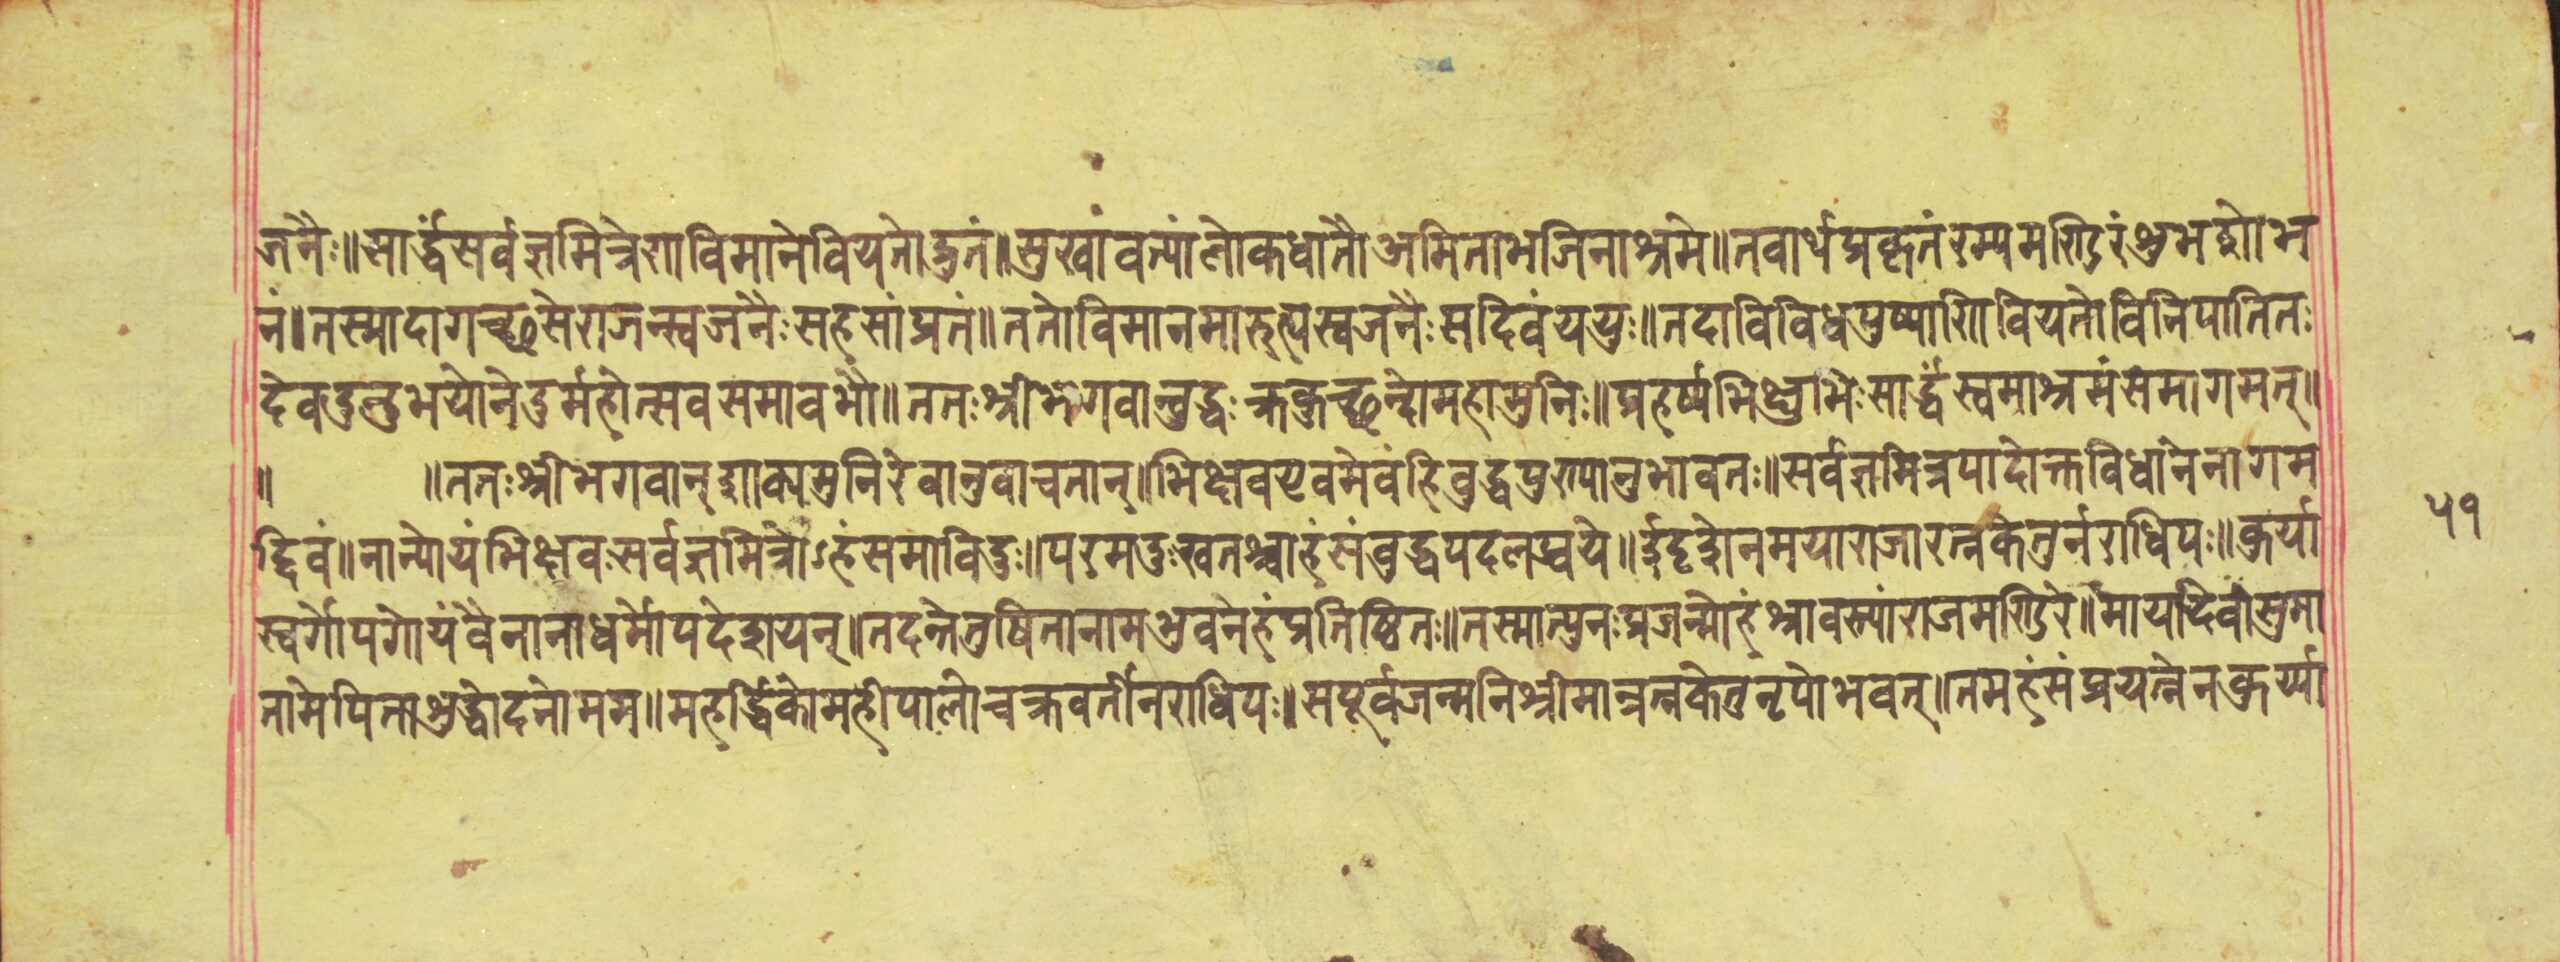 जनैः॥सार्द्धंसर्वज्ञमित्रेणविमानेवियतोद्भुतं॥सुखांवत्यांलोकधातौअमिताभजिनाश्रमे॥तवार्थप्रकृतंरम्यमण्डिरंशुभशोभ
नं॥तस्मादागच्छसेराजन्स्वजनैःसहसांप्रतं॥ततोविमानमारुत्यस्वजनैःसदिवंययुः॥तदाविविधपुष्पाणिवियतोविनिपातितः
देवदुन्दुभयोनेदुर्महोत्सवसमावभौ॥ततःश्रीभगवान्बुद्धःक्रकुच्छन्दोमहामुनिः॥प्रहर्ष्यभिक्षुभिःसार्द्धंस्वमाश्रमंसमागमत्॥
॥ ॥ततःश्रीभगवान्शाक्यमुनिरेवानुवाचतान्॥भिक्षवएवमेवंहिबुद्धपुण्यानुभावतः॥सर्वज्ञमित्रपादोक्तविधानेनागम
द्दिवं॥नान्योयंभिक्षवःसर्वज्ञमित्रोऽहंसमाविदुः॥परमदुःखतश्चाहंसंबुद्धपदलब्धये॥ईदृशेनमयाराजारत्नकेतुर्नराधिपः॥कुर्या
स्वर्गोपगोयंवैनानाधर्मोपदेशयन्॥तदन्तेतुषितानामभुवनेहंप्रतिष्ठितः॥तस्मात्पुनःप्रजन्मोहंश्रावस्त्यांराजमण्डिरे॥मायादेवीसुमा
तामेपिताशुद्धोदनोमम॥महर्द्धिकोमहीपालोचक्रवर्तीनराधिपः॥सपूर्वजन्मनिश्रीमान्रत्नकेतुनृपोभवत्॥तमहंसंप्रयत्नेनकुर्य्या
५१